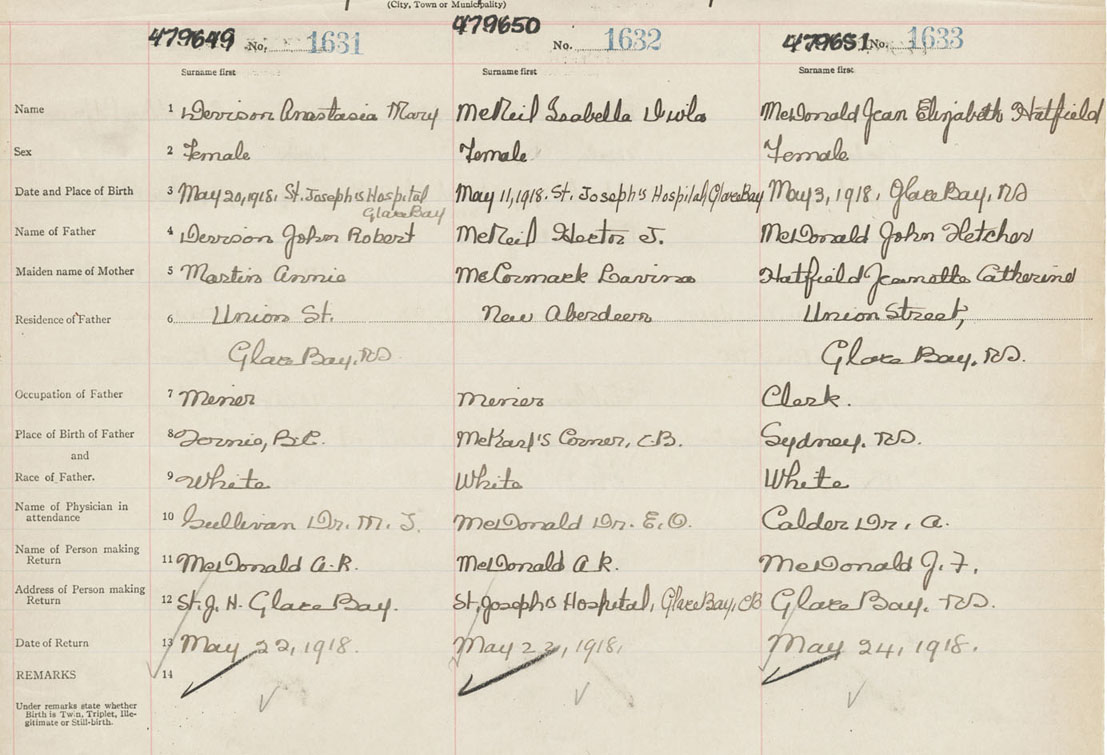 (City, Town or Municipality)
479649 No. 1631
479650 No. 1632
479651 No. 1633
Surname first Surname first Surname first
Name 1 Devison Anastasia Mary McNeil Isabella Twila McDonald Jean Elizabeth Hatfield
Sex 2 Female Female Female
Date and Place of Birth 3 May 20, 1918, St. Joseph's Hospital May 11, 1918. St. Joseph's Hospital, Glace Bay May 3, 1918, Glace Bay, NS
Glace Bay
Name of Father 4 Devison John Robert McNeil Hector J. McDonald John Fletcher
Maiden name of Mother 5 Martin Annie McCormack Lavina Hatfield Jeanette Catherine
Residence of Father 6 Union St. New Aberdeen Union Street,
Glace Bay, NS. Glace Bay, NS.
Occupation of Father 7 Miner Miner Clerk.
Place of Birth of Father 8 B.C. Corner, C.B. Sydney, NS.
and
Race of Father. 9 White White White
Name of Physician in
attendance 10 Sullivan Dr. M. J. McDonald Dr. E. O. Calder Dr. A.
Name of Person making
Return 11 McDonald A. R. McDonald A R. McDonald J. F.
Address of Person making
Return 12 St. J. H. Glace Bay. St. Joseph's Hospital, Glace Bay, CB Glace Bay, NS.
Date of Return 13 May 22, 1918. May 22, 1918. May 24, 1918.
REMARKS 14
Under remarks state whether
Birth is Twin, Triplet, Ille-
gitimate or Still-birth.